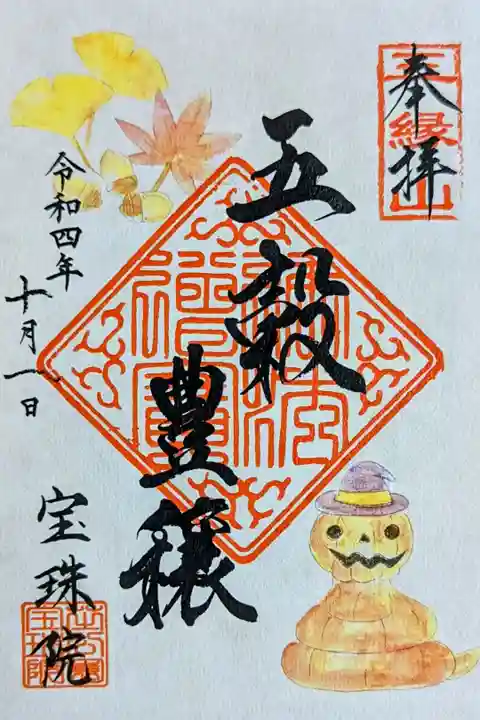 奉拝
五穀
豊穣
令和四年
十月一日
宝珠院